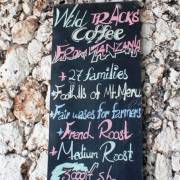 Wild TRACKS
Coffee
From TANZANIA
+ 27 families
+ Foothills of Mt. Meru
+ Fair wages for farmers
+ French Roast
+ Medium Roast